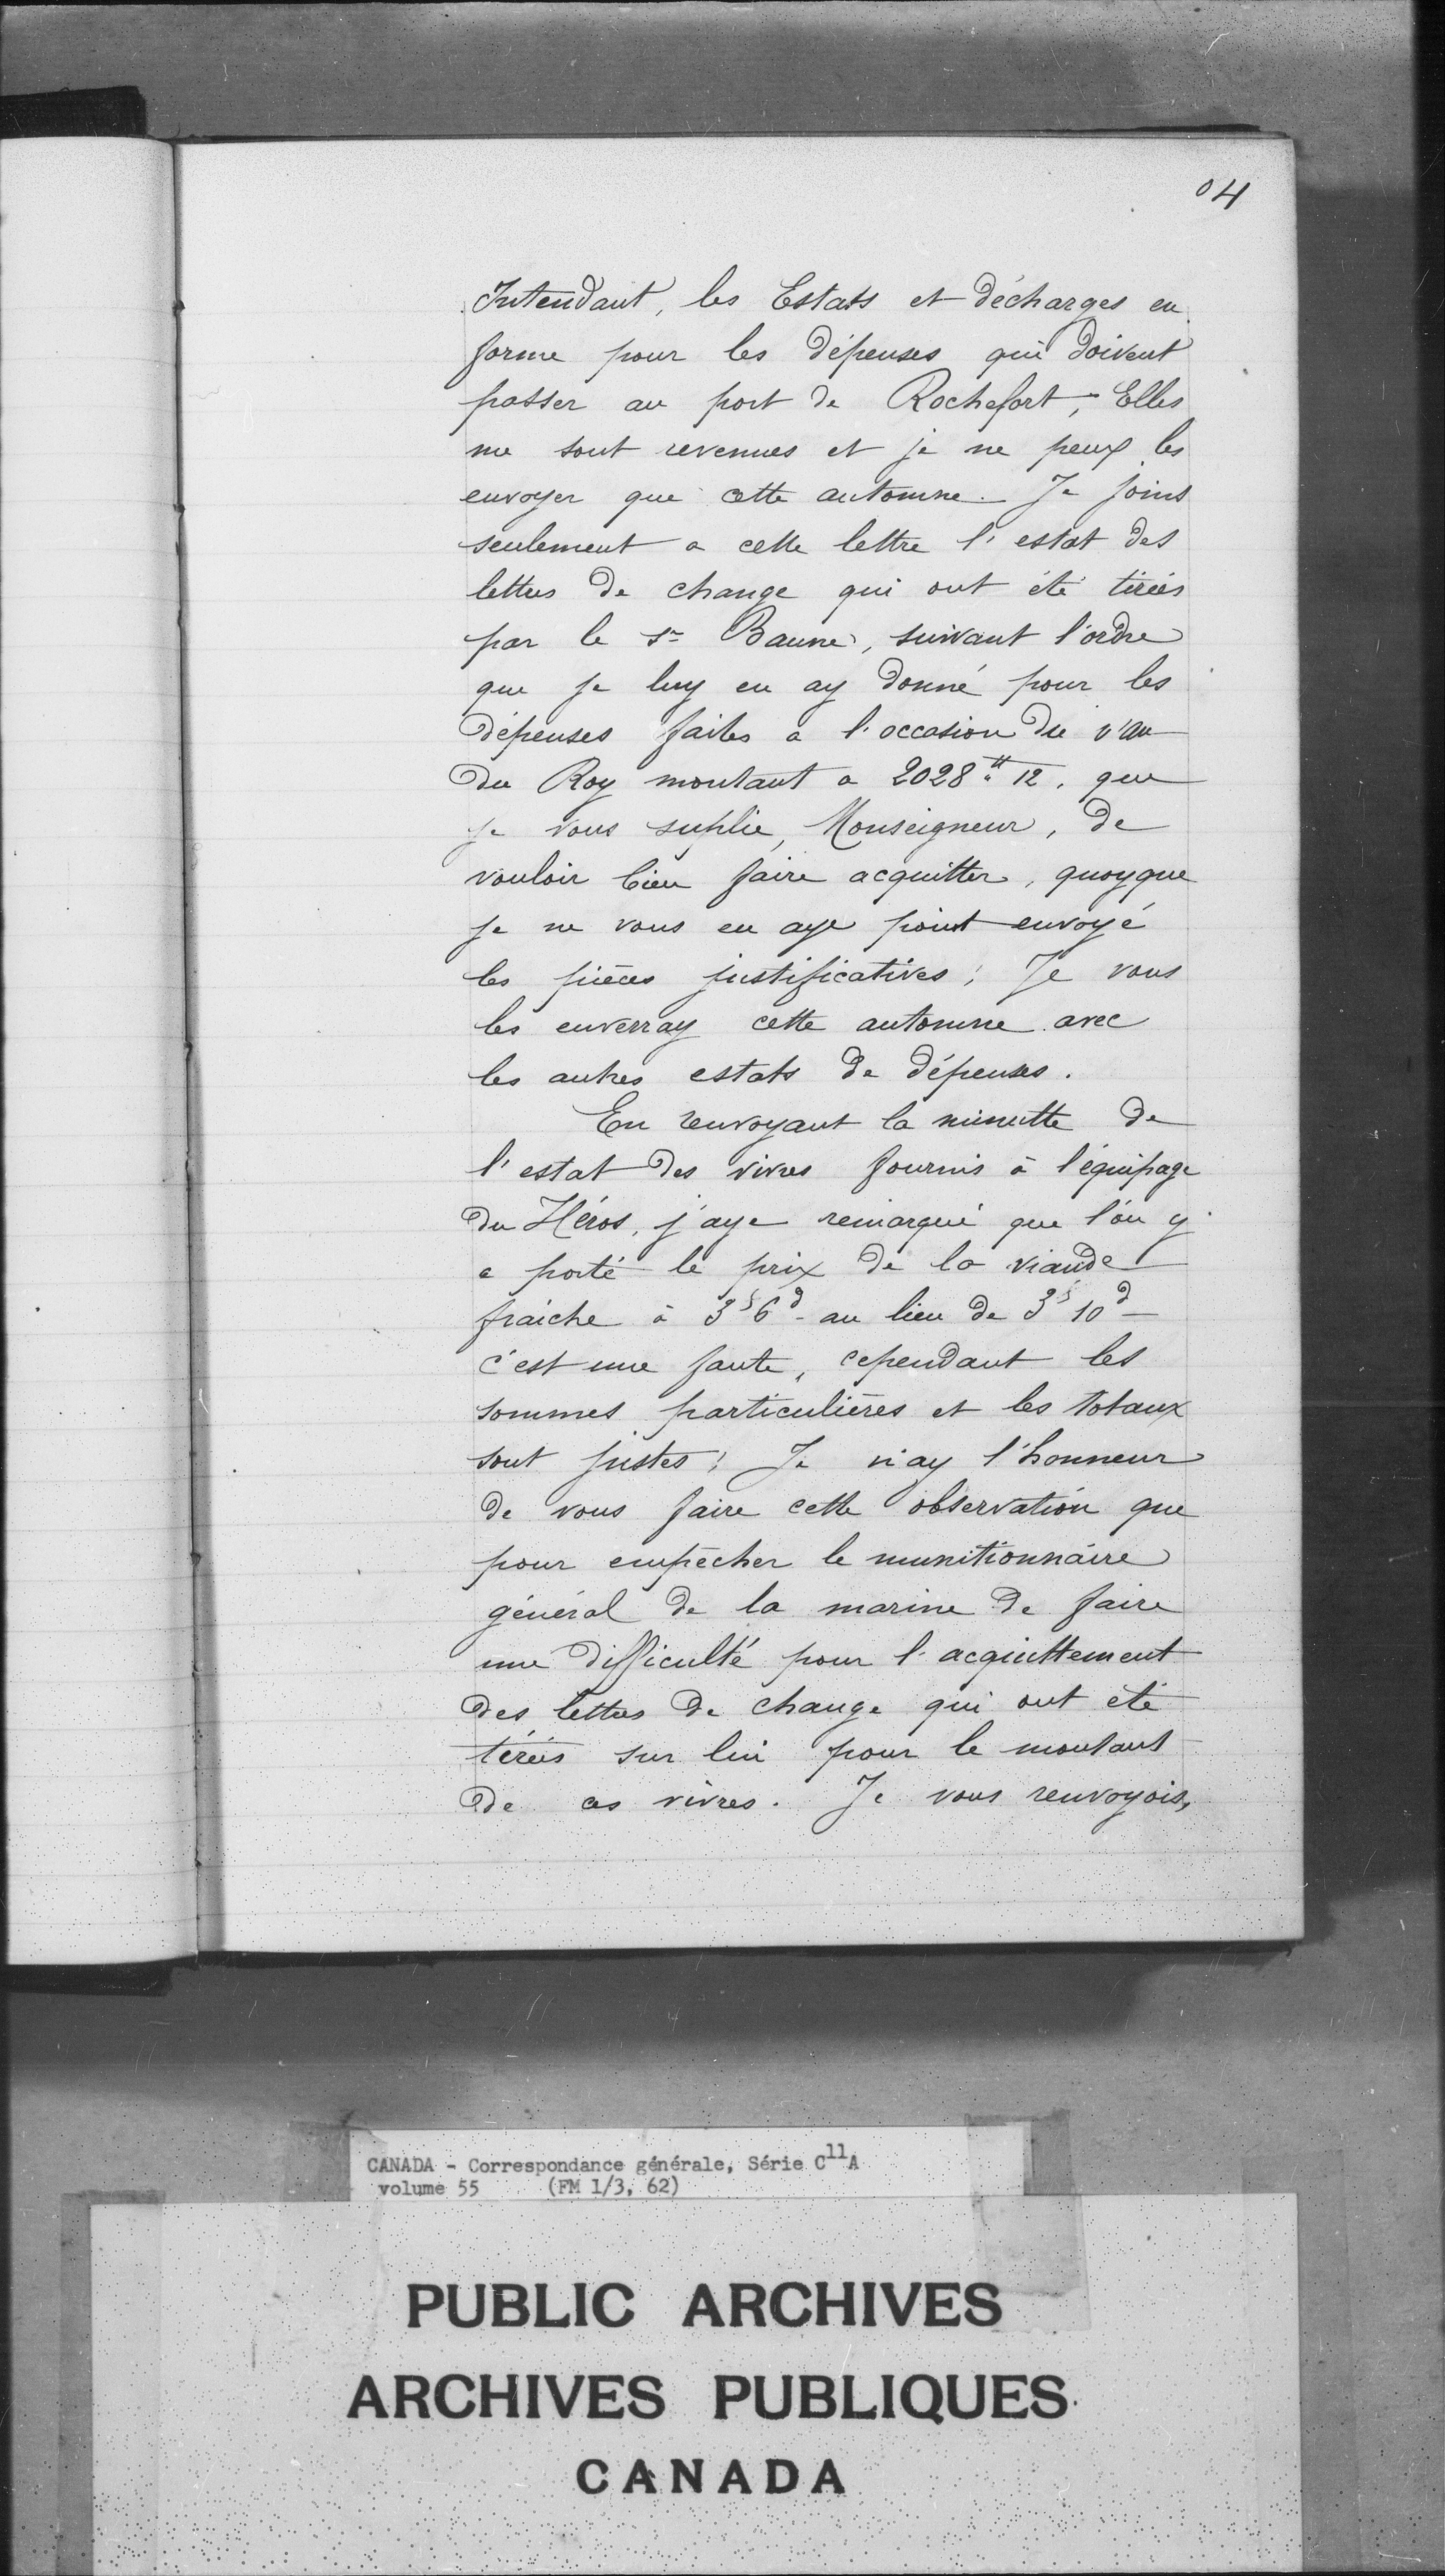 04
Intendant, les Estats et décharges en
forme pour les dépenses qui doivent
passer au port de Rochefort, Elles
me sont revenues et je ne peux les
envoyer que cette automne. Je joins
seulement a cette lettre l'estat des
lettres de change qui ont été tirées
par le Sr Baune, suivant l'ordre
que je luy en ay donné pour les
dépenses faites a l'occasion du v'au
du Roy montant a 2028# 12. que
je vous suplie, Monseigneur, de
vouloir bien faire acquitter, quoyque
je ne vous en aye point envoyé
les pièces justificatives; Je vous
les enverray cette automne avec
les autres estats de dépenses.
En renvoyant la minutte de
l'estat des vivres fournis à l'équipage
du Héros, j'aye remarqué que l'on y
a porté le prix de la viande
fraiche à 3s 6d - au lieu de 3s 10d -
c'est une faute, cependant les
sommes particulières et les totaux
sont justes; Je n'ay l'honneur
de vous faire cette observation que
pour empêcher le munitionnaire
général de la marine de faire
une difficulté pour l'acquittement
des lettres de change qui ont été
tirées sur lui pour le montant
de ces vivres. Je vous renvoyois,
CANADA - Correspondance générale, Série C11A
volume 55 (FM 1/3, 62)
PUBLIC ARCHIVES
ARCHIVES PUBLIQUES
CANADA